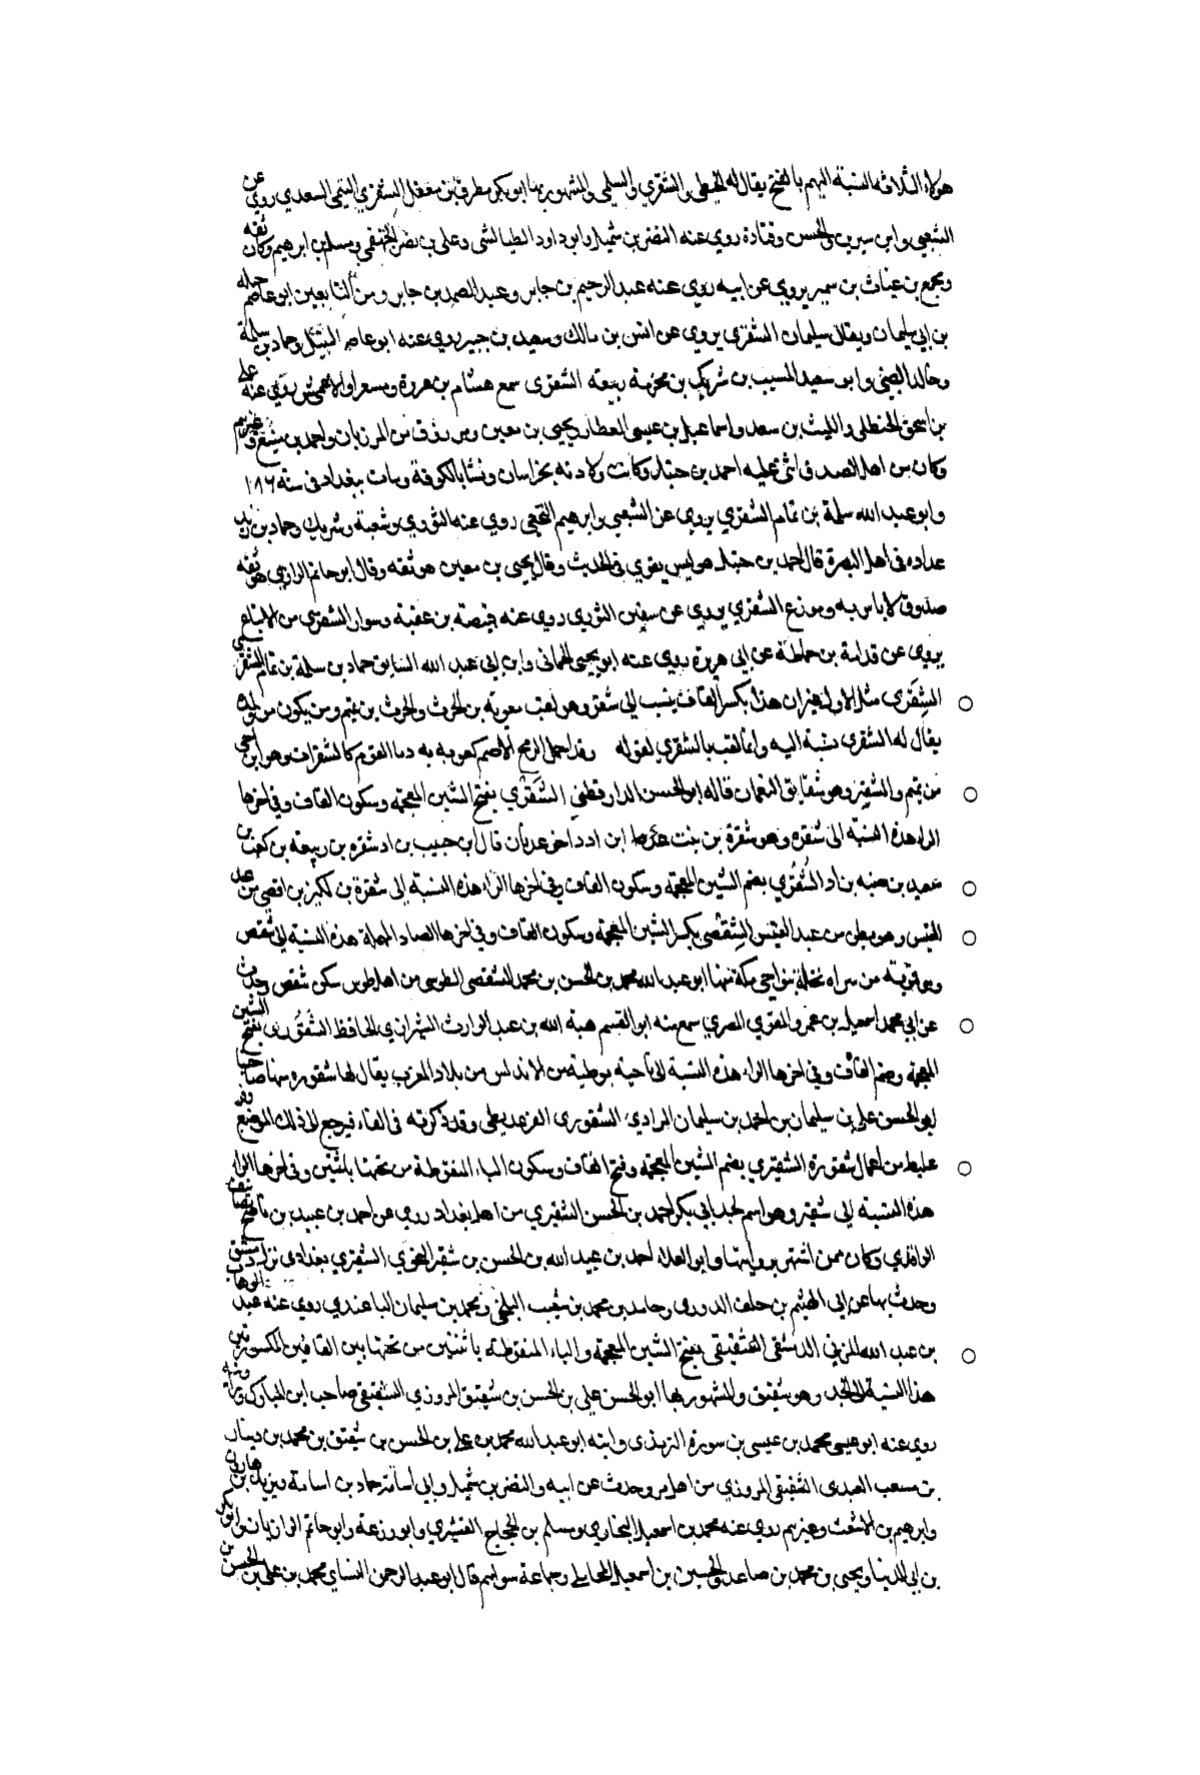 هولاء الثلاثه النسبة اليهم بالفتح يقال له الحبطي والشقري والسلمي والمشهور بها ابو بكر مطرف بن معقل الشقري التيمي السعدي روي عن
الشعبي وابن سيرين والحسن وقتادة روي عنه النضر بن شميل وابو داود الطيالسي وعلي بن نصر الجهضمي ومسلم بن ابرهيم وكان ثقه
ومجمع بن عتاب بن سمير يروي عن ابيه روي عنه عبد الرحيم بن جابر وعبد الصمد بن جابر ومن التابعين ابو عاصم
بن ابي سليمان ويقال سليمان الشقري يروي عن انس بن مالك وسعيد بن جبير روي عنه ابو عاصم النبيل وحماد بن سلمة
وخالد وابو سعيد المسيب بن شريك بن ربيعة الشقري سمع هشام بن عروة ومسعرا والاعمش روي عنه علي
بن اسحق الحنظلي والليث بن سعد واسماعيل بن عيسى العطار ويحيى بن معين ومرزوق بن المرزبان واحمد بن منيع وغيرهم
وكان من اهل الصدق اثنى عليه احمد بن حنبل وكانت ولادته بخراسان ونشا بالكوفة ومات ببغداد في سنة ١٨٦
وابو عبد الله سلمة بن تمام الشقري يروي عن الشعبي وابرهيم النخعي روي عنه الثوري وشعبة وشريك وحماد بن زيد
عداده في اهل البصرة قال احمد بن حنبل هو ليس بقوي في الحديث وقال يحيى بن معين هو ثقه وقال ابو حاتم الرازي هو ثقه
صدوق لا باس به وموزع الشقري يروي عن سفين الثوري روي عنه قبيصة بن عقبة وسوار الشقري من الاتباع
يروي عن قدامة بن حماطة عن ابي هريرة روي عنه ابو يحيى الحماني وابن ابي عبد الله السابق حماد بن سلمة بن تمام الشقري
الشقري مثل الاول غير ان هذا بكسر القاف ينسب الى شقر وهو لقب معوية بن الحرث والحرث بن تميم ومن يكون من ولده
يقال له الشقري نسبة اليه وانما لقب بالشقري لقوله وقد احمل الرمح الاصم كعوبه به دما القوم كالشقرات وهو ابن اخي
من تميم والشقر وهو شقايق النعمان قاله ابو الحسن الدارقطني الشقري بفتح الشين المعجمة وسكون القاف وفي اخرها
الرا هذه النسبة الى شقره وهو شقرة بن بنت ابن ادد اخو عدنان قال ابن حبيب بن اد شقره بن ربيعة بن كعب بن
سعيد بن ضبه بن اد الشقري بضم الشين المعجمة وسكون القاف وفي اخرها الراء هذه النسبة الى شقرة بن لكيز بن افصى من عبد
القيس وهو بطن من عبد القيس الشقصي بكسر الشين المعجمة وسكون القاف وفي اخرها الصاد المهملة هذه النسبة الى شقص
وهو قرية من سراه نخلة بنواحي مكة منها ابو عبد الله محمد بن الحسن بن محمد الشقصي الطوسي من اهل طوس سكن شقص وحدث
عن ابي محمد اسمعيل بن عمرو المقري المصري سمع منه ابو القسم هبة الله بن عبد الوارث الشيرازي الحافظ الشقوري بفتح الشين
المعجمة وضم القاف وفي اخرها الراء هذه النسبة الى ناحية من الاندلس من بلاد المغرب يقال لها شقوره منها صاحبنا
ابو الحسن علي بن سليمان بن احمد بن سليمان المرادي الشقوري الفرغليطي وقد ذكرته في الفاء فيرجع الى ذلك الموضع وفر
غليط من اعمال شقورة الشقيري بضم الشين المعجمة وفتح القاف وسكون الياء المنقوطة من تحتها باثنتين وفي اخرها الراء
هذه النسبة الى شقير وهو اسم لجد ابي بكر احمد بن الحسن الشقيري من اهل بغداد روي عن احمد بن عبيد بن ناصح تصانيف
الواقدي وكان ممن اشتهر بروايتها وابو العلاء احمد بن عبيد الله بن الحسن بن شقير النحوي الشقيري بغدادي نزل دمشق
وحدث بها عن ابي الهيثم بن خلف الدوري وحامد بن محمد بن شعيب البلخي ومحمد بن سليمان الباغندي روي عنه عبد الوهاب
بن عبد الله المزني الدمشقي الشقيقي بفتح الشين المعجمة والياء المنقوطة باثنتين من تحتها بين القافين المكسورتين
هذا النسبة الى الجد وهو شقيق والمشهور بها ابو الحسن علي بن الحسن بن شقيق المروزي الشقيقي صاحب ابن المبارك
روي عنه ابو عيسى محمد بن عيسى بن سورة الترمذي وابنه ابو عبد الله محمد بن علي بن الحسن بن شقيق بن محمد بن دينار
بن مسعب العبدي الشقيقي المروزي من اهل مرو حدث عن ابيه والنضر بن شميل وابي اسامة حماد بن اسامة ويزيد بن هارون
وابرهيم بن الاشعث وغيرهم روي عنه محمد بن اسمعيل البخاري ومسلم بن الحجاج القشيري وابو زرعة وابو حاتم الرازيان وابو بكر
بن ابي الدنيا ويحيى بن محمد بن صاعد والحسين بن اسمعيل المحاملي وجماعة سواهم قال ابو عبد الرحمن النساي محمد بن علي بن الحسن بن